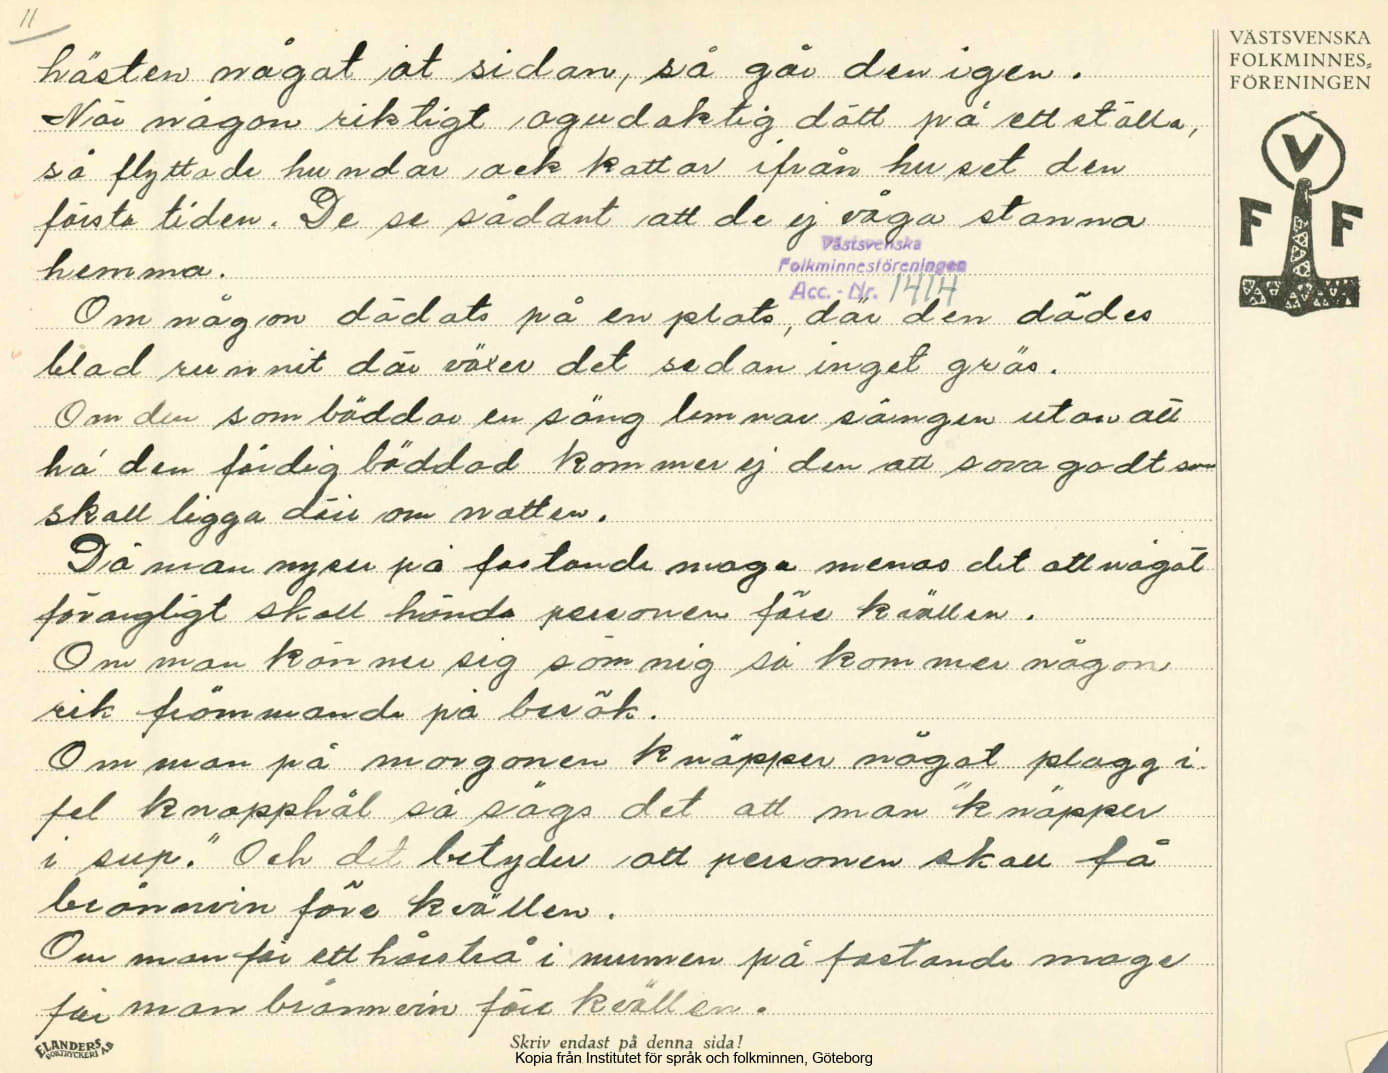 11
VÄSTSVENSKA
FOLKMINNES-
FÖRENINGEN
V
F F
hästen något åt sidan, så går den igen.
När någon riktigt ogudaktig dött på ett ställe,
så flyttade hundar ock kattar ifrån huset den
första tiden. De se sådant att de ej våga stanna
hemma.
Västsvenska
Folkminnesföreningen
Acc.-Nr. 1414
Om någon dödats på en plats, där den dödes
blod runnit där växer det sedan inget gräs.
Om den som bäddar en säng lemnar sängen utan att
ha den färdig bäddad kommer ej den att sova godt som
skall ligga däri om natten.
Då man nyser på fastande mage menas det att något
förargligt skall hända personen före kvällen.
Om man känner sig sömnig så kommer någon
rik främmande på besök.
Om man på morgonen knäpper något plagg i
fel knapphål så sägs det att man "knäpper
i sup." Och det betyder att personen skall få
brännvin före kvällen.
Om man får ett hårstrå i munnen på fastande mage
får man brännvin före kvällen.
ELANDERS
BOKTRYCKERI AB
Skriv endast på denna sida!
Kopia från Institutet för språk och folkminnen, Göteborg